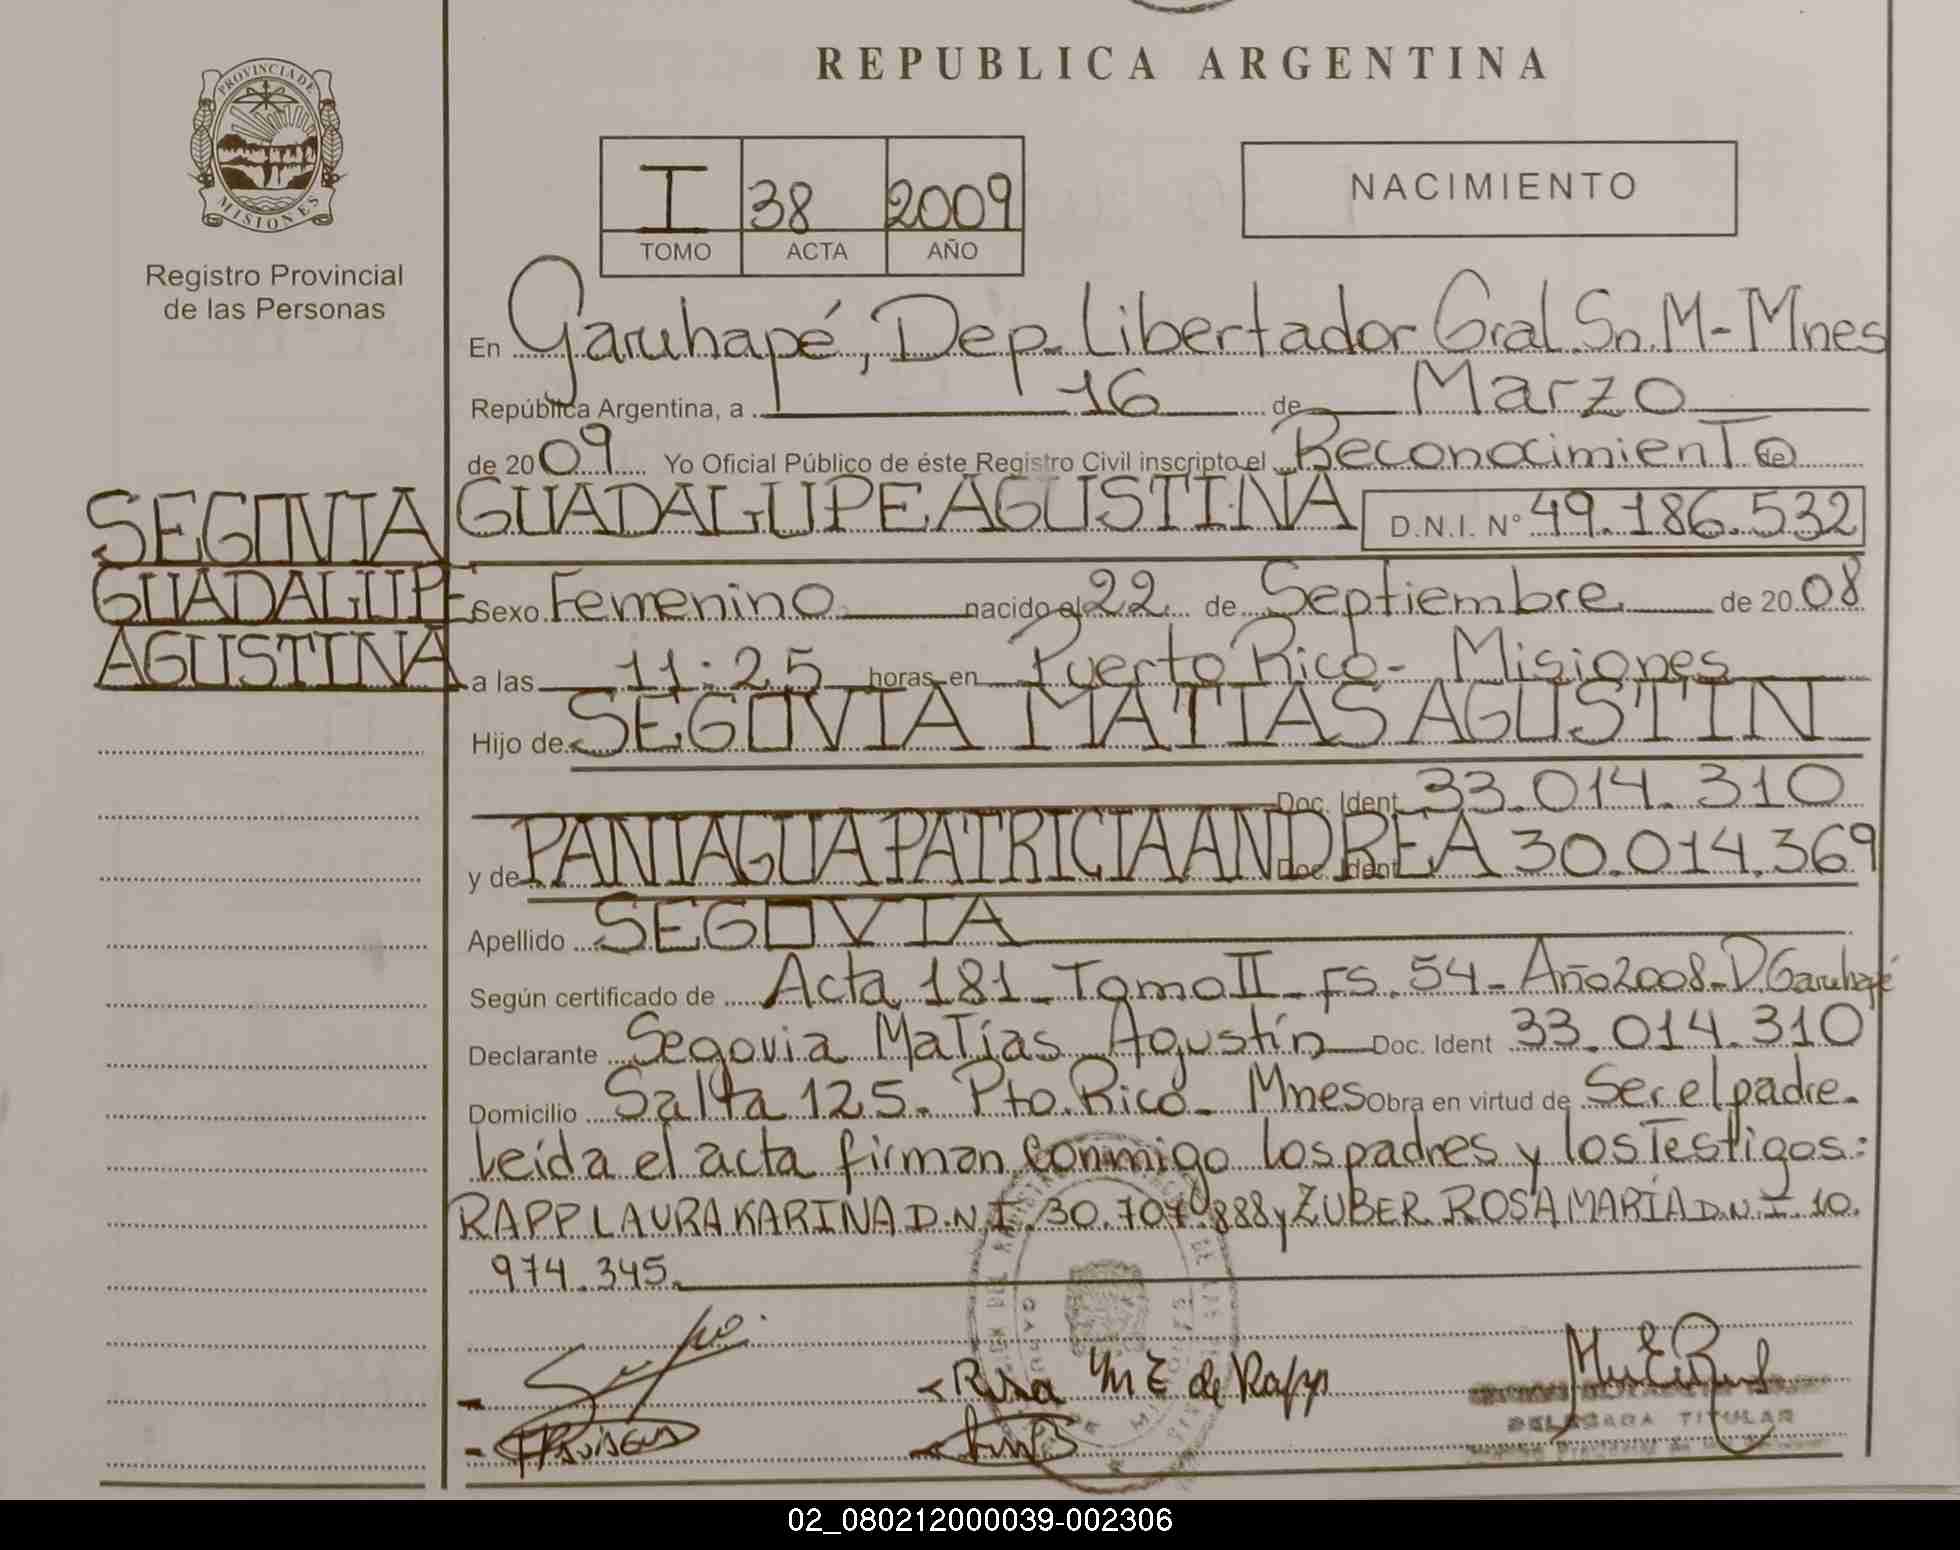 REPUBLICA ARGENTINA
PROVINCIA DE
MISIONES
Registro Provincial
de las Personas
I 38 2009
TOMO ACTA AÑO
NACIMIENTO
En Garuhapé, Dep. Libertador Gral. Sn. M- Mnes
República Argentina, a 16 de Marzo
de 2009 Yo Oficial Público de éste Registro Civil inscripto el Reconocimiento de
SEGOVIA
GUADALUPE
AGUSTINA
GUADALUPE AGUSTINA D.N.I. N° 49.186.532
Sexo Femenino nacido el 22 de Septiembre de 2008
a las 11:25 horas en Puerto Rico - Misiones
Hijo de SEGOVIA MATIAS AGUSTIN
Doc. Ident 33.014.310
y de PANIAGUA PATRICIA ANDREA Doc. Ident 30.014.369
Apellido SEGOVIA
Según certificado de Acta 181 - Tomo II - Fs. 54 - Año 2008 - D. Garuhapé
Declarante Segovia Matías Agustín Doc. Ident 33.014.310
Domicilio Salta 125. Pto. Rico - Mnes Obra en virtud de Ser el padre.
Leída el acta firman conmigo los padres y los Testigos:
RAPP LAURA KARINA D.N.I. 30.707.888 y ZUBER ROSA MARÍA D.N.I. 10.
974.345.
Rosa M Z de Rapp
DELEGADA TITULAR
02_080212000039-002306